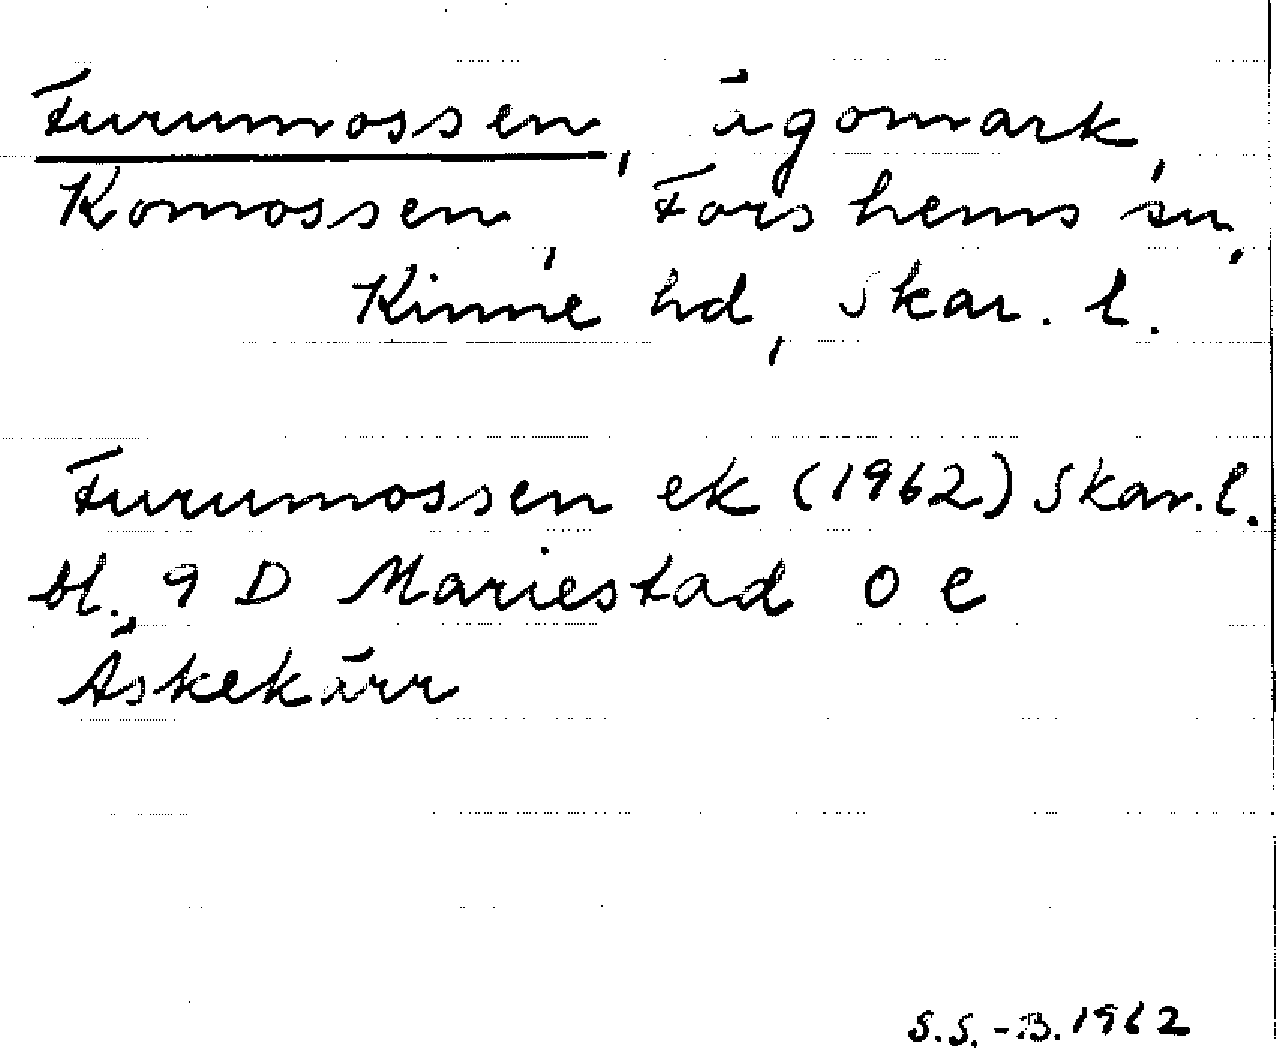 Furumossen, ägomark,
Komossen, Forshems sn,
Kinne hd, Skar. l.
Furumossen ek (1962) Skar. l.
bl. 9 D Mariestad 0 e
Äskekärr
S.S.-B. 1962